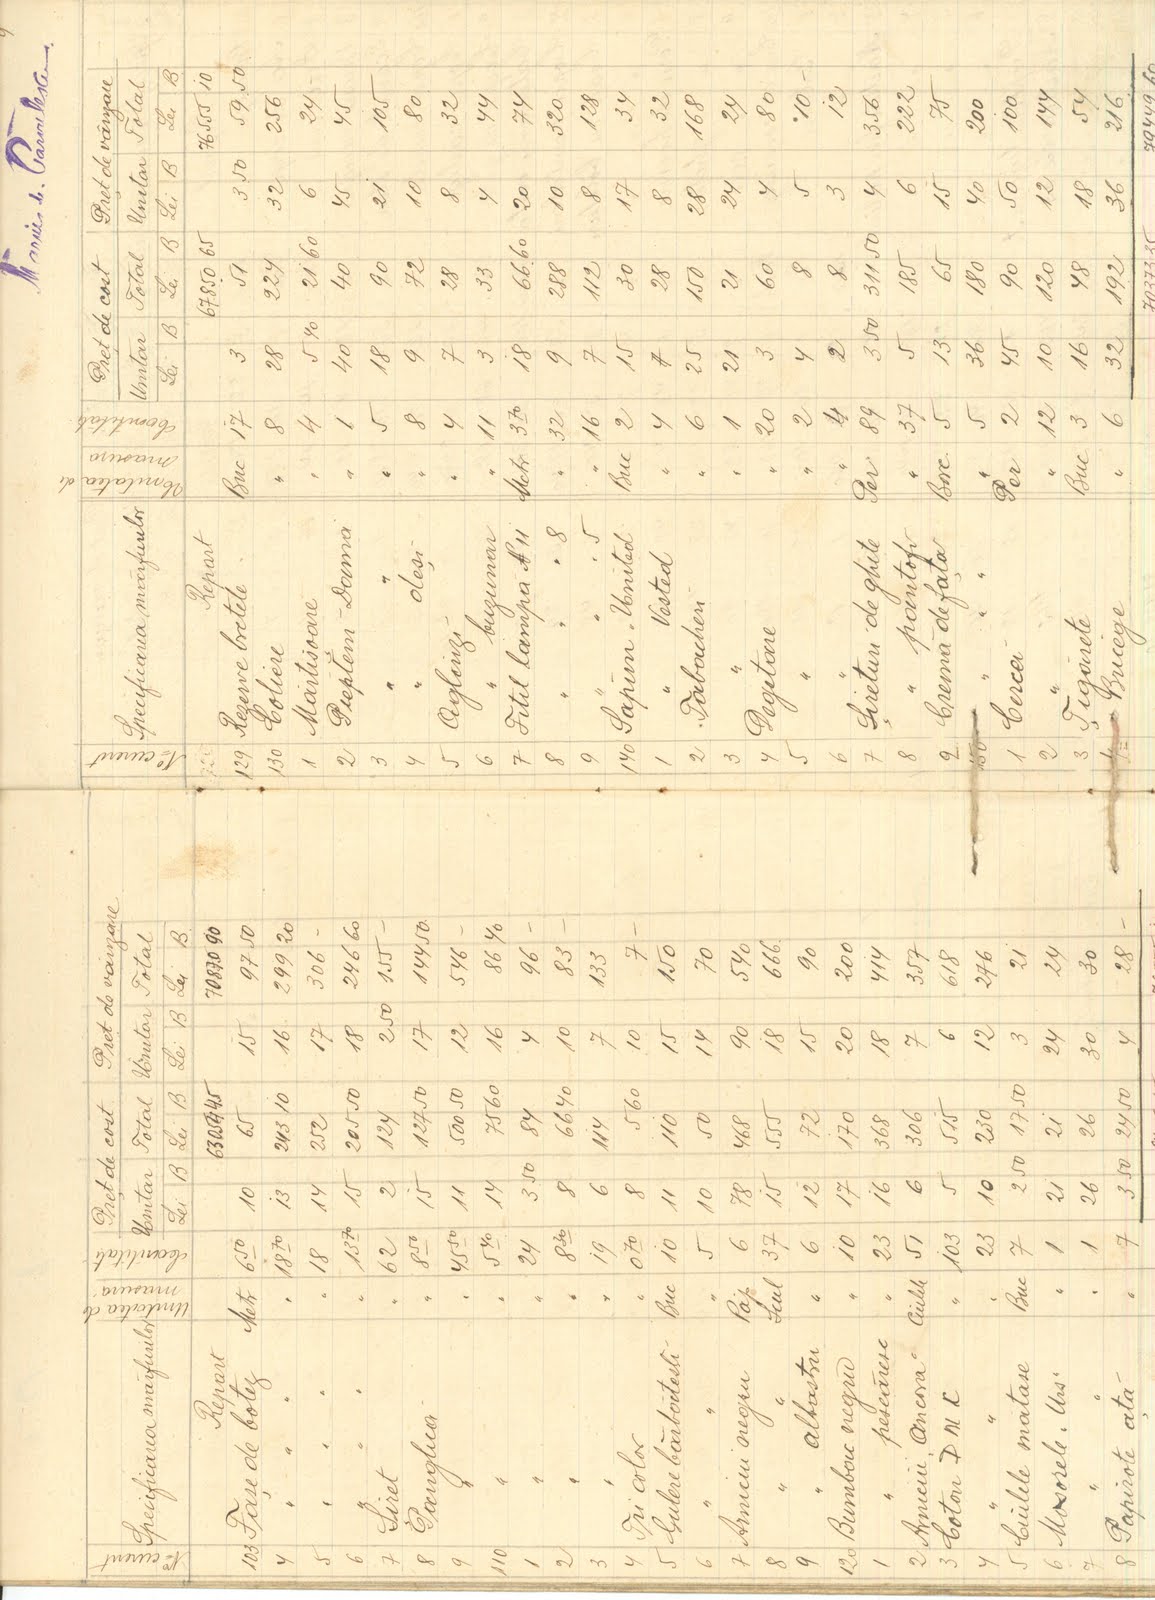 Nº curent Specificarea mărfurilor Unitatea de masura Cantitati Preț de cost Preț de vânzare
Unitar Total Unitar Total
Lei B Lei B Lei B Lei B
Report 63057 45 70870 90
103 Fașe de botez Metr 6 50 10 65 15 97 50
4 " " " " 18 70 13 243 10 16 299 20
5 " " " " 18 14 252 17 306 –
6 " " " " 13 70 15 205 50 18 246 60
7 Siret " 62 2 124 2 50 155 –
8 Panglica " 8 50 15 127 50 17 144 50
9 " " 45 50 11 500 50 12 546 –
110 " " 5 40 14 75 60 16 86 40
1 " " 24 3 50 84 4 96 –
2 " " 8 30 8 66 40 10 83 –
3 " " 19 6 114 7 133
4 Tri color " 0 70 8 5 60 10 7 –
5 Gulere bărbătesti Buc 10 11 110 15 150
6 " " 5 10 50 14 70
7 Arniciu negru Pap 6 78 468 90 540
8 " " Scul 37 15 555 18 666
9 " albastru " 6 12 72 15 90
120 Bumbac negru " 10 17 170 20 200
1 " pescăresc " 23 16 368 18 414
2 Arniciu Ancora Ciulete 51 6 306 7 357
3 Coton D M C " 103 5 515 6 618
4 " " " 23 10 230 12 276
5 Ciulete matase Buc 7 2 50 17 50 3 21
6 Mosorele Urs " 1 21 21 24 24
7 " " " 1 26 26 30 30
8 Papirote ață " 7 3 50 24 50 4 28 –
Nº curent Specificarea mărfurilor Unitatea de masura Cantitati Preț de cost Preț de vânzare
Unitar Total Unitar Total
Lei B Lei B Lei B Lei B
Report 67850 65 76555 10
129 Rezerve bretele Buc 17 3 51 3 50 59 50
130 Coliere " 8 28 224 32 256
1 Martisoare " 4 5 40 21 60 6 24 –
2 Piepteni Dama " 1 40 40 45 45
3 " " " 5 18 90 21 105
4 " deși " 8 9 72 10 80
5 Oglinzi " 4 7 28 8 32
6 " buzunar " 11 3 33 4 44
7 Fitil lampa № 11 Metr 3 70 18 66 60 20 74
8 " " " 8 " 32 9 288 10 320
9 " " " 5 " 16 7 112 8 128
140 Săpun United Buc 2 15 30 17 34
1 " Vested " 4 7 28 8 32
2 Tabacheri " 6 25 150 28 168
3 " " 1 21 21 24 24
4 Degetare " 20 3 60 4 80
5 " " 2 4 8 5 10 –
6 " " 4 2 8 3 12
7 Șireturi de ghete Per 89 3 50 311 50 4 356
8 " pantofi " 37 5 185 6 222
9 Crema de fața Borc 5 13 65 15 75
150 " " " " 5 36 180 40 200
1 Cercei Per 2 45 90 50 100
2 " " 12 10 120 12 144
3 Țigarete Buc 3 16 48 18 54
4 Bucege " 6 32 192 36 216